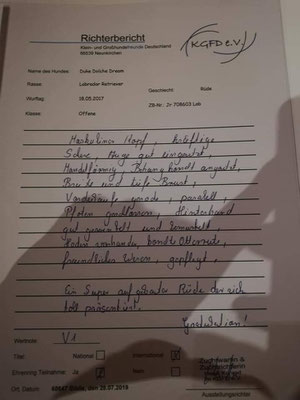 Richterbericht
Klein- und Großhundefreunde Deutschland
66539 Neunkirchen
KGFD e.V.
Name des Hundes: Duke Dolche Dream
Rasse Labrador Retriever Geschlecht Rüde
Wurftag 18.05.2017 ZB-Nr.: 2+ 708603 Lab
Klasse Offene
Maskuliner Kopf, kräftige
Schere, Auge gut eingesetzt,
Mandelförmig, Behang korrekt angesetzt,
Breite und tiefe Brust,
Vorderläufe gerade, parallel,
Pfoten geschlossen, Hinterhand
gut gewinkelt und bemuskelt
Hoden vorhanden, korrekte Otterrute,
freundliches Wesen, gepflegt.
Ein Super aufgebauter Rüde der sich
toll präsentiert.
Gratulation!
Wertnote: V1
Titel: National International
Ehrenring Teilnahme: Ja Nein
Ort, Datum
Ausstellungsrichter